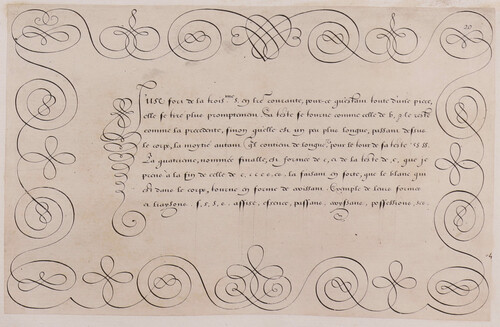 20
USE fort de la trois.me S. en lre courante, pource questant toute dune piece,
elle se tire plus promptement. Sa teste se tourne comme celle de b, & le reste
comme la precedente, sinon quelle est un peu plus longue, passant dessus
le corps, la moytie autant quil contient de longue. pour le bout de sa teste
La quatrieme, nommée finalle, est formee de o, et de la teste de e, que je
prens à la fin de celle de c. la faisant en sorte, que le blanc qui
est dans le corps, tourne en forme de croissant. Exemple de leurs formes
et liaysons. f, s, s, assise, essence, puissance, croyssance, possessions, &c.